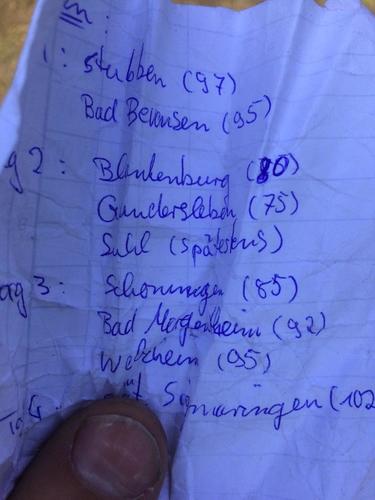 1: Stubben (97)
Bad Bevensen (95)
g 2: Blankenburg (80)
Gundersleben (75)
Suhl (spätestens)
ag 3: Schonungen (85)
Bad Mergentheim (92)
Welzheim (95)
Tag 4: Sigmaringen (102